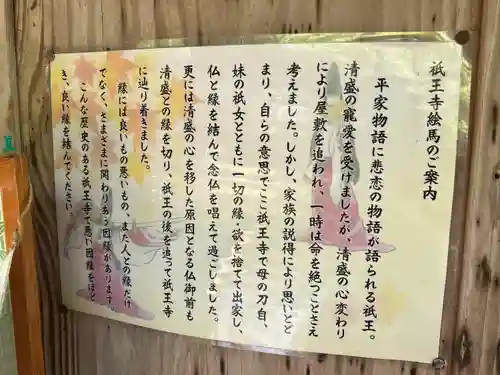 祇王寺絵馬のご案内
平家物語に悲恋の物語が語られる祇王。
清盛の寵愛を受けましたが、清盛の心変わり
により屋敷を追われ、一時は命を絶つことさえ
考えました。しかし、家族の説得により思いとど
まり、自らの意思でここ祇王寺で母の刀自、
妹の祇女とともに一切の縁・欲を捨てて出家し、
仏と縁を結んで念仏を唱えて過ごしました。
更には清盛の心を移した原因となる仏御前も
清盛との縁を切り、祇王の後を追って祇王寺
に辿り着きました。
縁には良いもの悪いもの、また人との縁だけ
でなく、さまざまに関わりある因縁があります。
こんな歴史のある祇王寺で悪い因縁をほど
き、良い縁を結んでください。